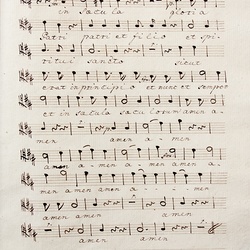 in Sæcula gloria
Patri patri et filio et spi
ritui sancto sicut
erat in principio et nunc et semper
et in Sæcula sæculorum amen a-
men amen a - men
amen a - men a - men amen a-
men amen amen a - - - - men
amen amen
amen amen